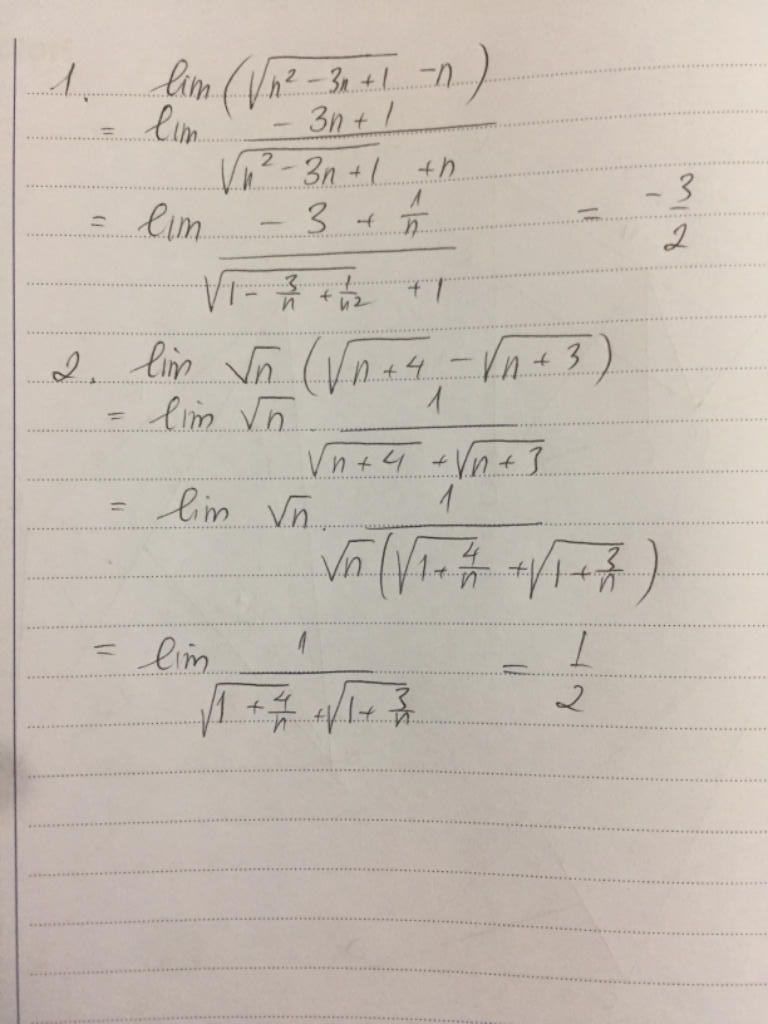 1. lim (√(n² - 3n + 1) - n)
= lim (- 3n + 1)/(√(n² - 3n + 1) + n)
= lim (- 3 + 1/n)/(√(1 - 3/n + 1/n²) + 1) = -3/2
2. lim √n (√(n + 4) - √(n + 3))
= lim √n . 1/(√(n + 4) + √(n + 3))
= lim √n . 1/(√n (√(1 + 4/n) + √(1 + 3/n)))
= lim 1/(√(1 + 4/n) + √(1 + 3/n)) = 1/2